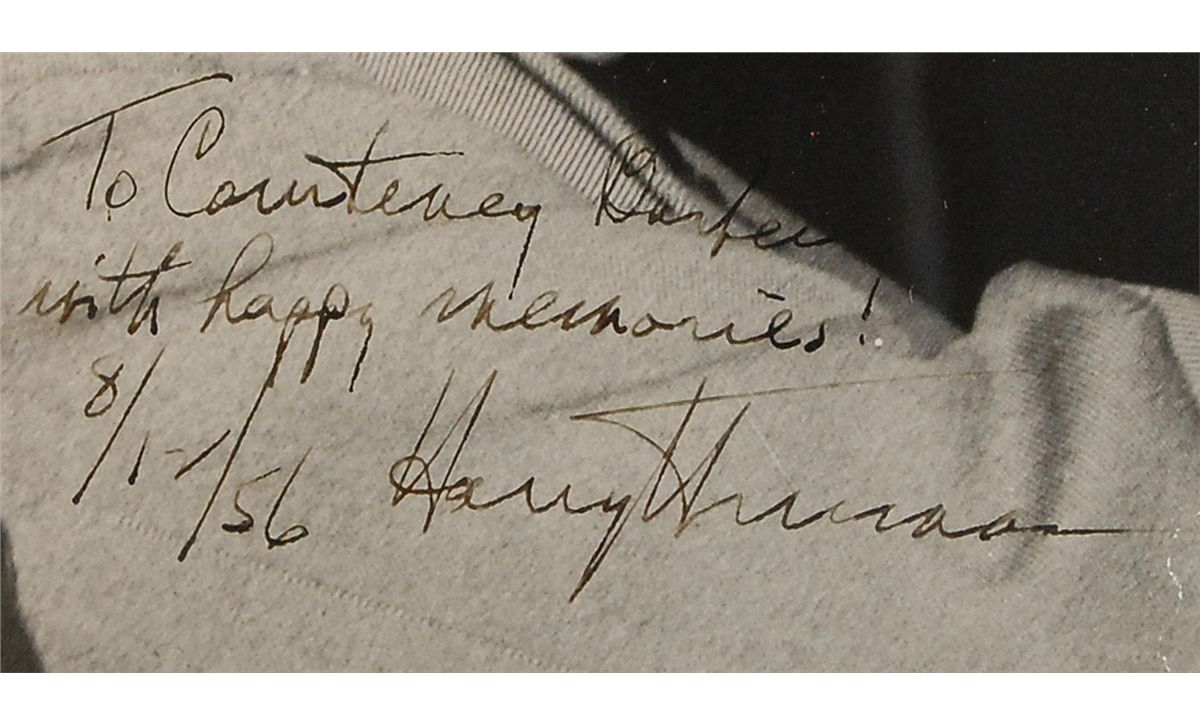 To Courteney Barber
with happy memories!
8/1-1/56 Harry Truman